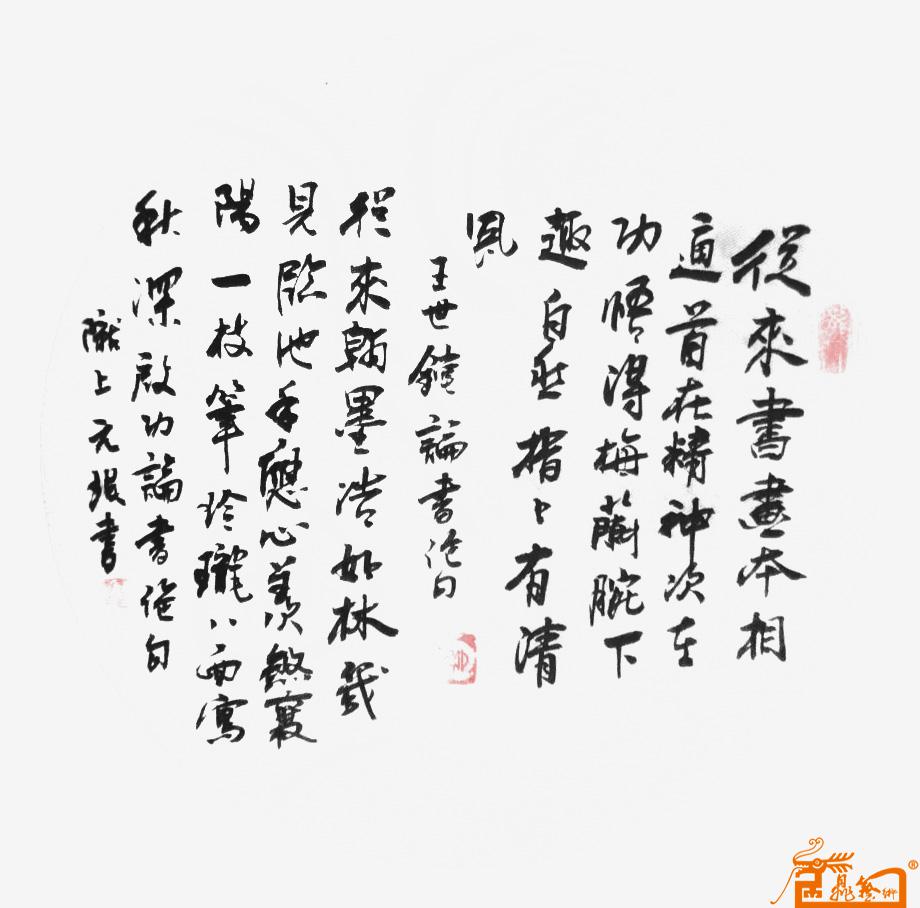 從來書畫本相
通首在精神次在
功悟得梅蘭腕下
趣自然指上有清
風
王世鏜論書絕句
從來翰墨浩如林幾
見臨池手應心羨煞襄
陽一枝筆玲瓏八面寫
秋深啟功論書絕句
隴上元報書